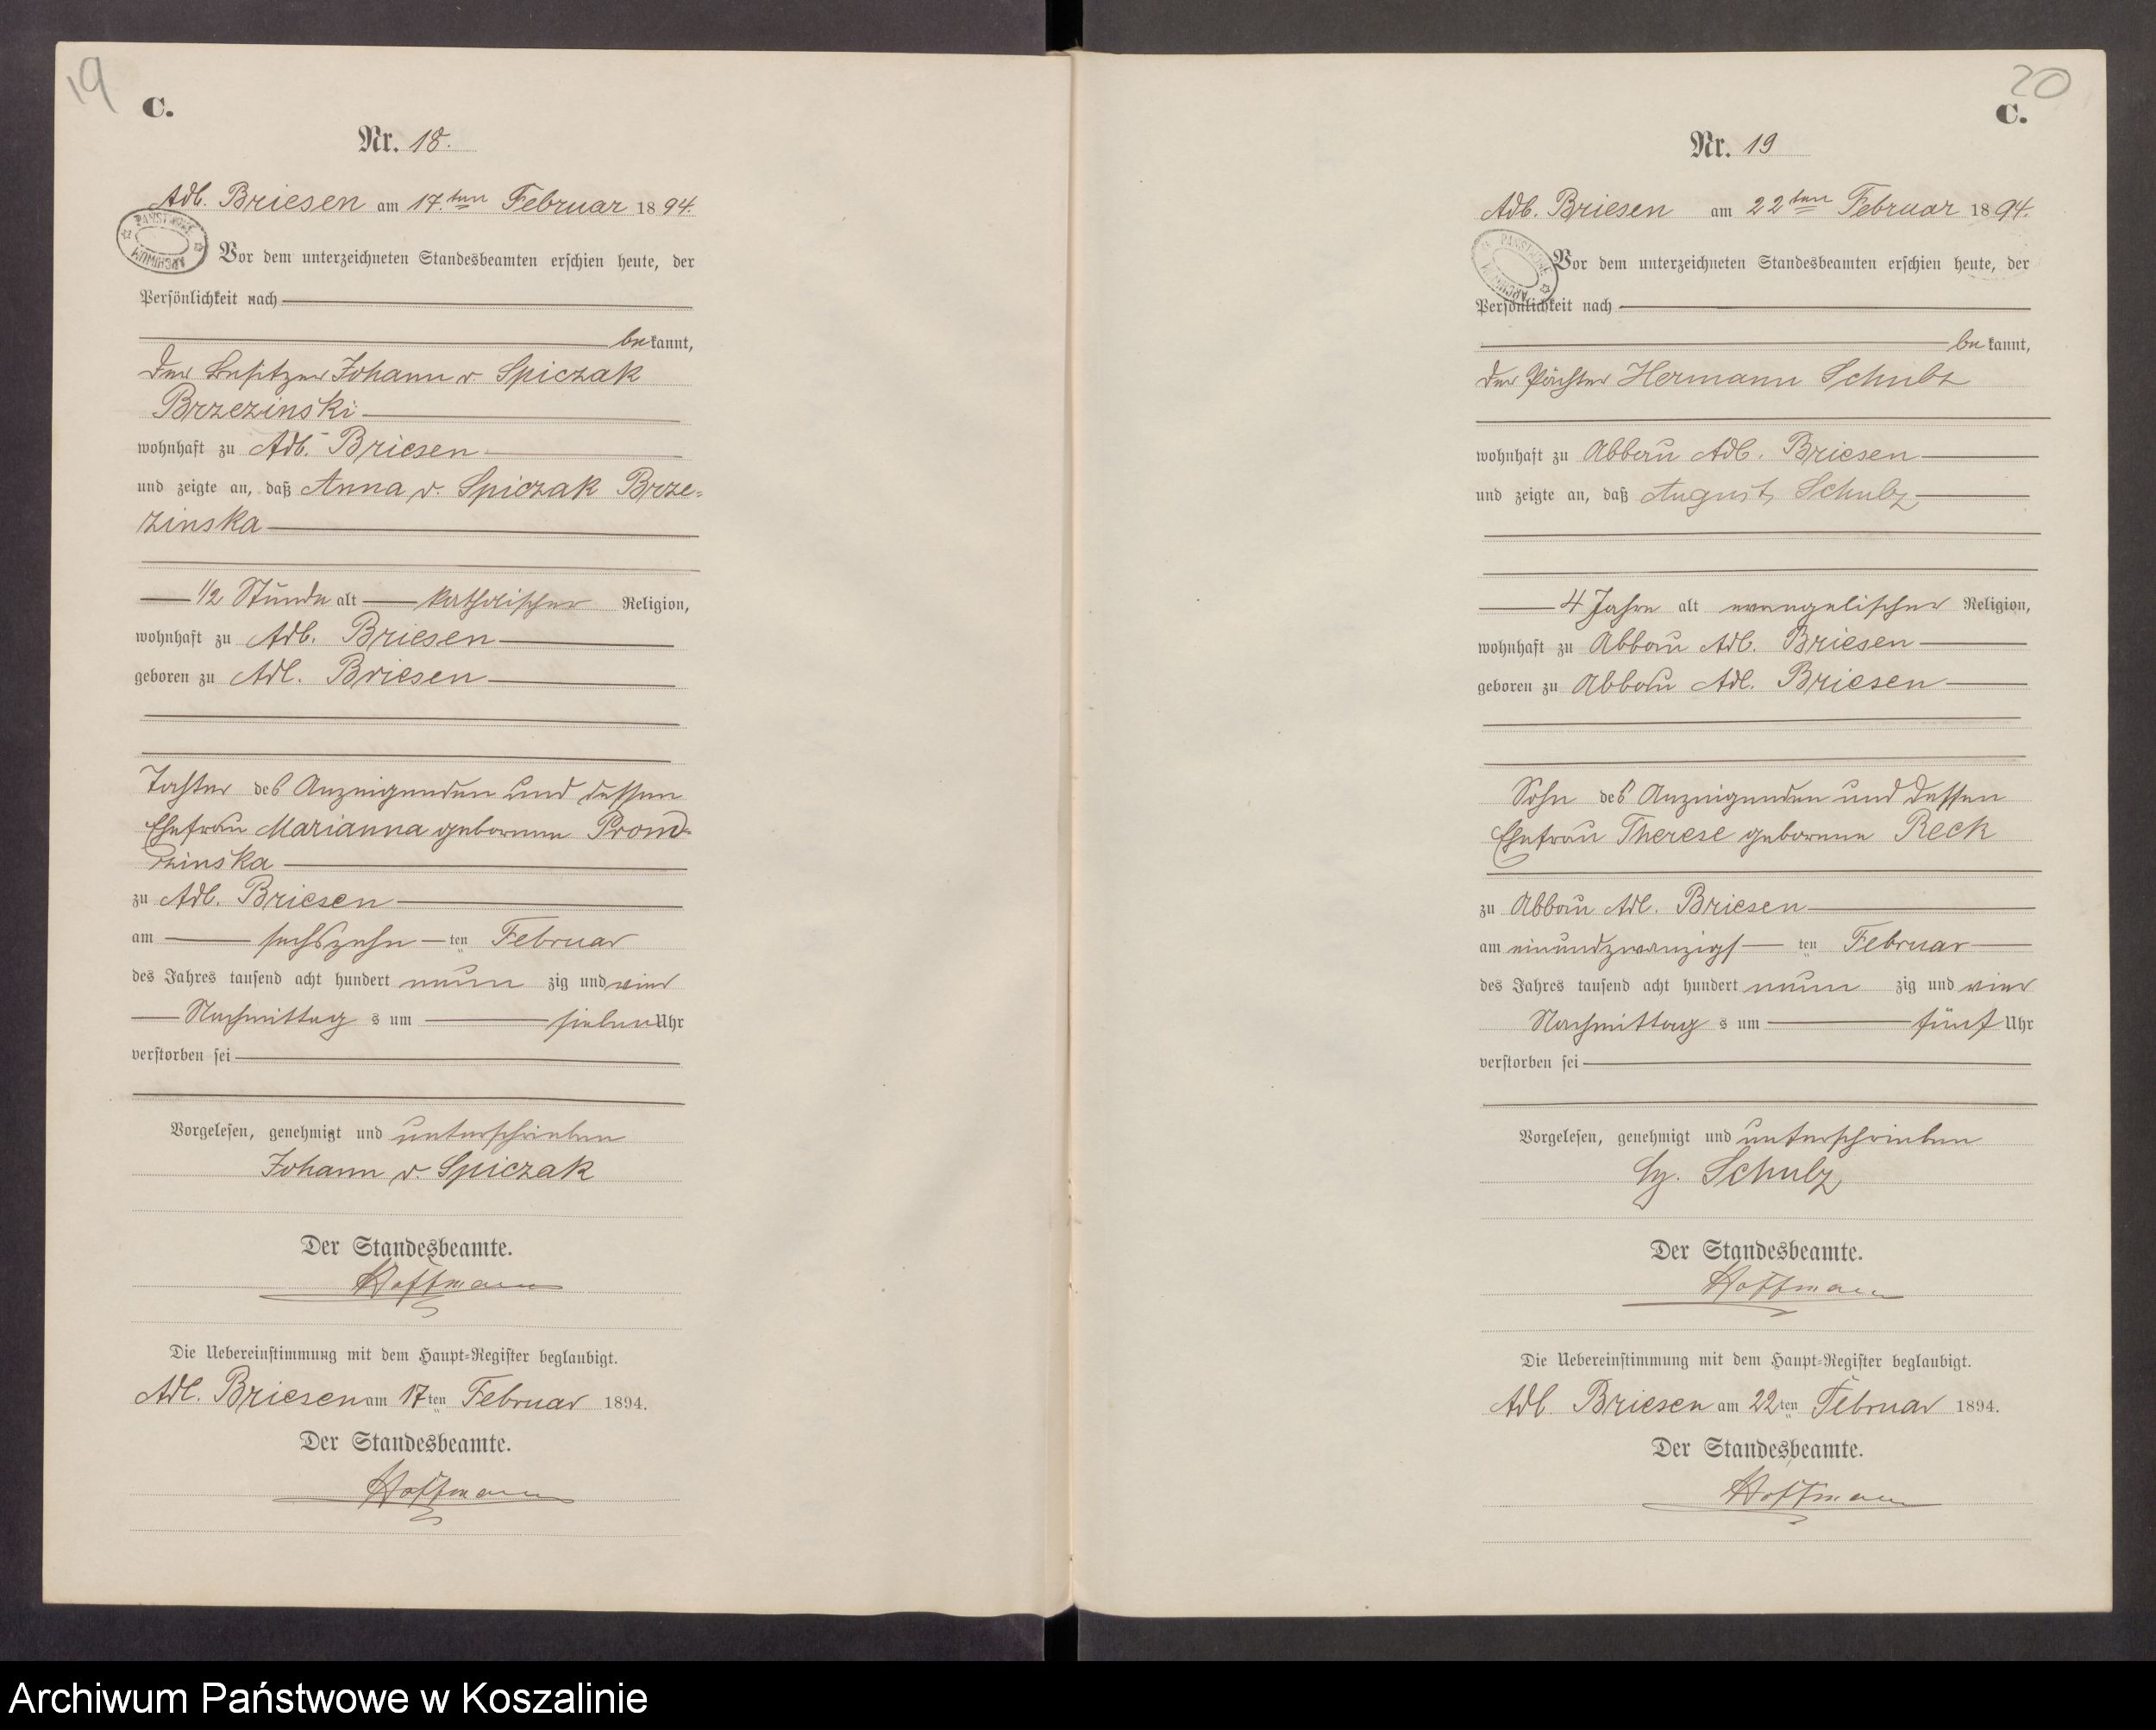 19
C.
Nr. 18.
Adl. Briesen am 17.ten Februar 1894.
PAŃSTWOWE ARCHIWUM
Vor dem unterzeichneten Standesbeamten erschien heute, der
Persönlichkeit nach
bekannt,
der Besitzer Johann v Spiczak
Brzezinski
wohnhaft zu Adl. Briesen
und zeigte an, daß Anna v. Spiczak Brze-
zinska
1/2 Stunde alt katholischer Religion,
wohnhaft zu Adl. Briesen
geboren zu Adl. Briesen
Tochter des Anzeigenden und dessen
Ehefrau Marianna geborenen Prond-
zinska
zu Adl. Briesen
am sechszehn ten Februar
des Jahres tausend acht hundert neun zig und vier
Nachmittag s um sieben Uhr
verstorben sei
Vorgelesen, genehmigt und unterschrieben
Johann v. Spiczak
Der Standesbeamte.
Hoffmann
Die Uebereinstimmung mit dem Haupt-Register beglaubigt.
Adl. Briesen am 17ten Februar 1894.
Der Standesbeamte.
Hoffmann
20
C.
Nr. 19
Adl. Briesen am 22ten Februar 1894.
PAŃSTWOWE ARCHIWUM
Vor dem unterzeichneten Standesbeamten erschien heute, der
Persönlichkeit nach
bekannt,
der Pächter Hermann Schulz
wohnhaft zu Abbau Adl. Briesen
und zeigte an, daß August Schulz
4 Jahre alt evangelischer Religion,
wohnhaft zu Abbau Adl. Briesen
geboren zu Abbau Adl. Briesen
Sohn des Anzeigenden und dessen
Ehefrau Therese geborene Reck
zu Abbau Adl. Briesen
am einundzwanzigs ten Februar
des Jahres tausend acht hundert neun zig und vier
Nachmittag s um fünf Uhr
verstorben sei
Vorgelesen, genehmigt und unterschrieben
Schulz
Der Standesbeamte.
Hoffmann
Die Uebereinstimmung mit dem Haupt-Register beglaubigt.
Adl. Briesen am 22ten Februar 1894.
Der Standesbeamte.
Hoffmann
Archiwum Państwowe w Koszalinie